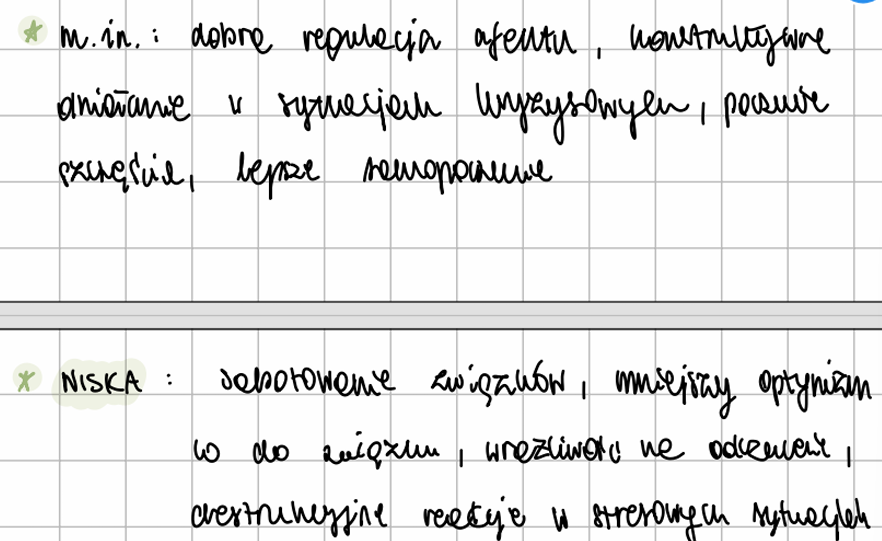 m.in.: dobra regulacja afektu, konstruktywne
działanie w sytuacjach kryzysowych, poczucie
szczęścia, lepsze samopoczucie
NISKA: sabotowanie związków, mniejszy optymizm
co do związku, wrażliwość na odrzucenie,
destrukcyjne reakcje w stresowych sytuacjach